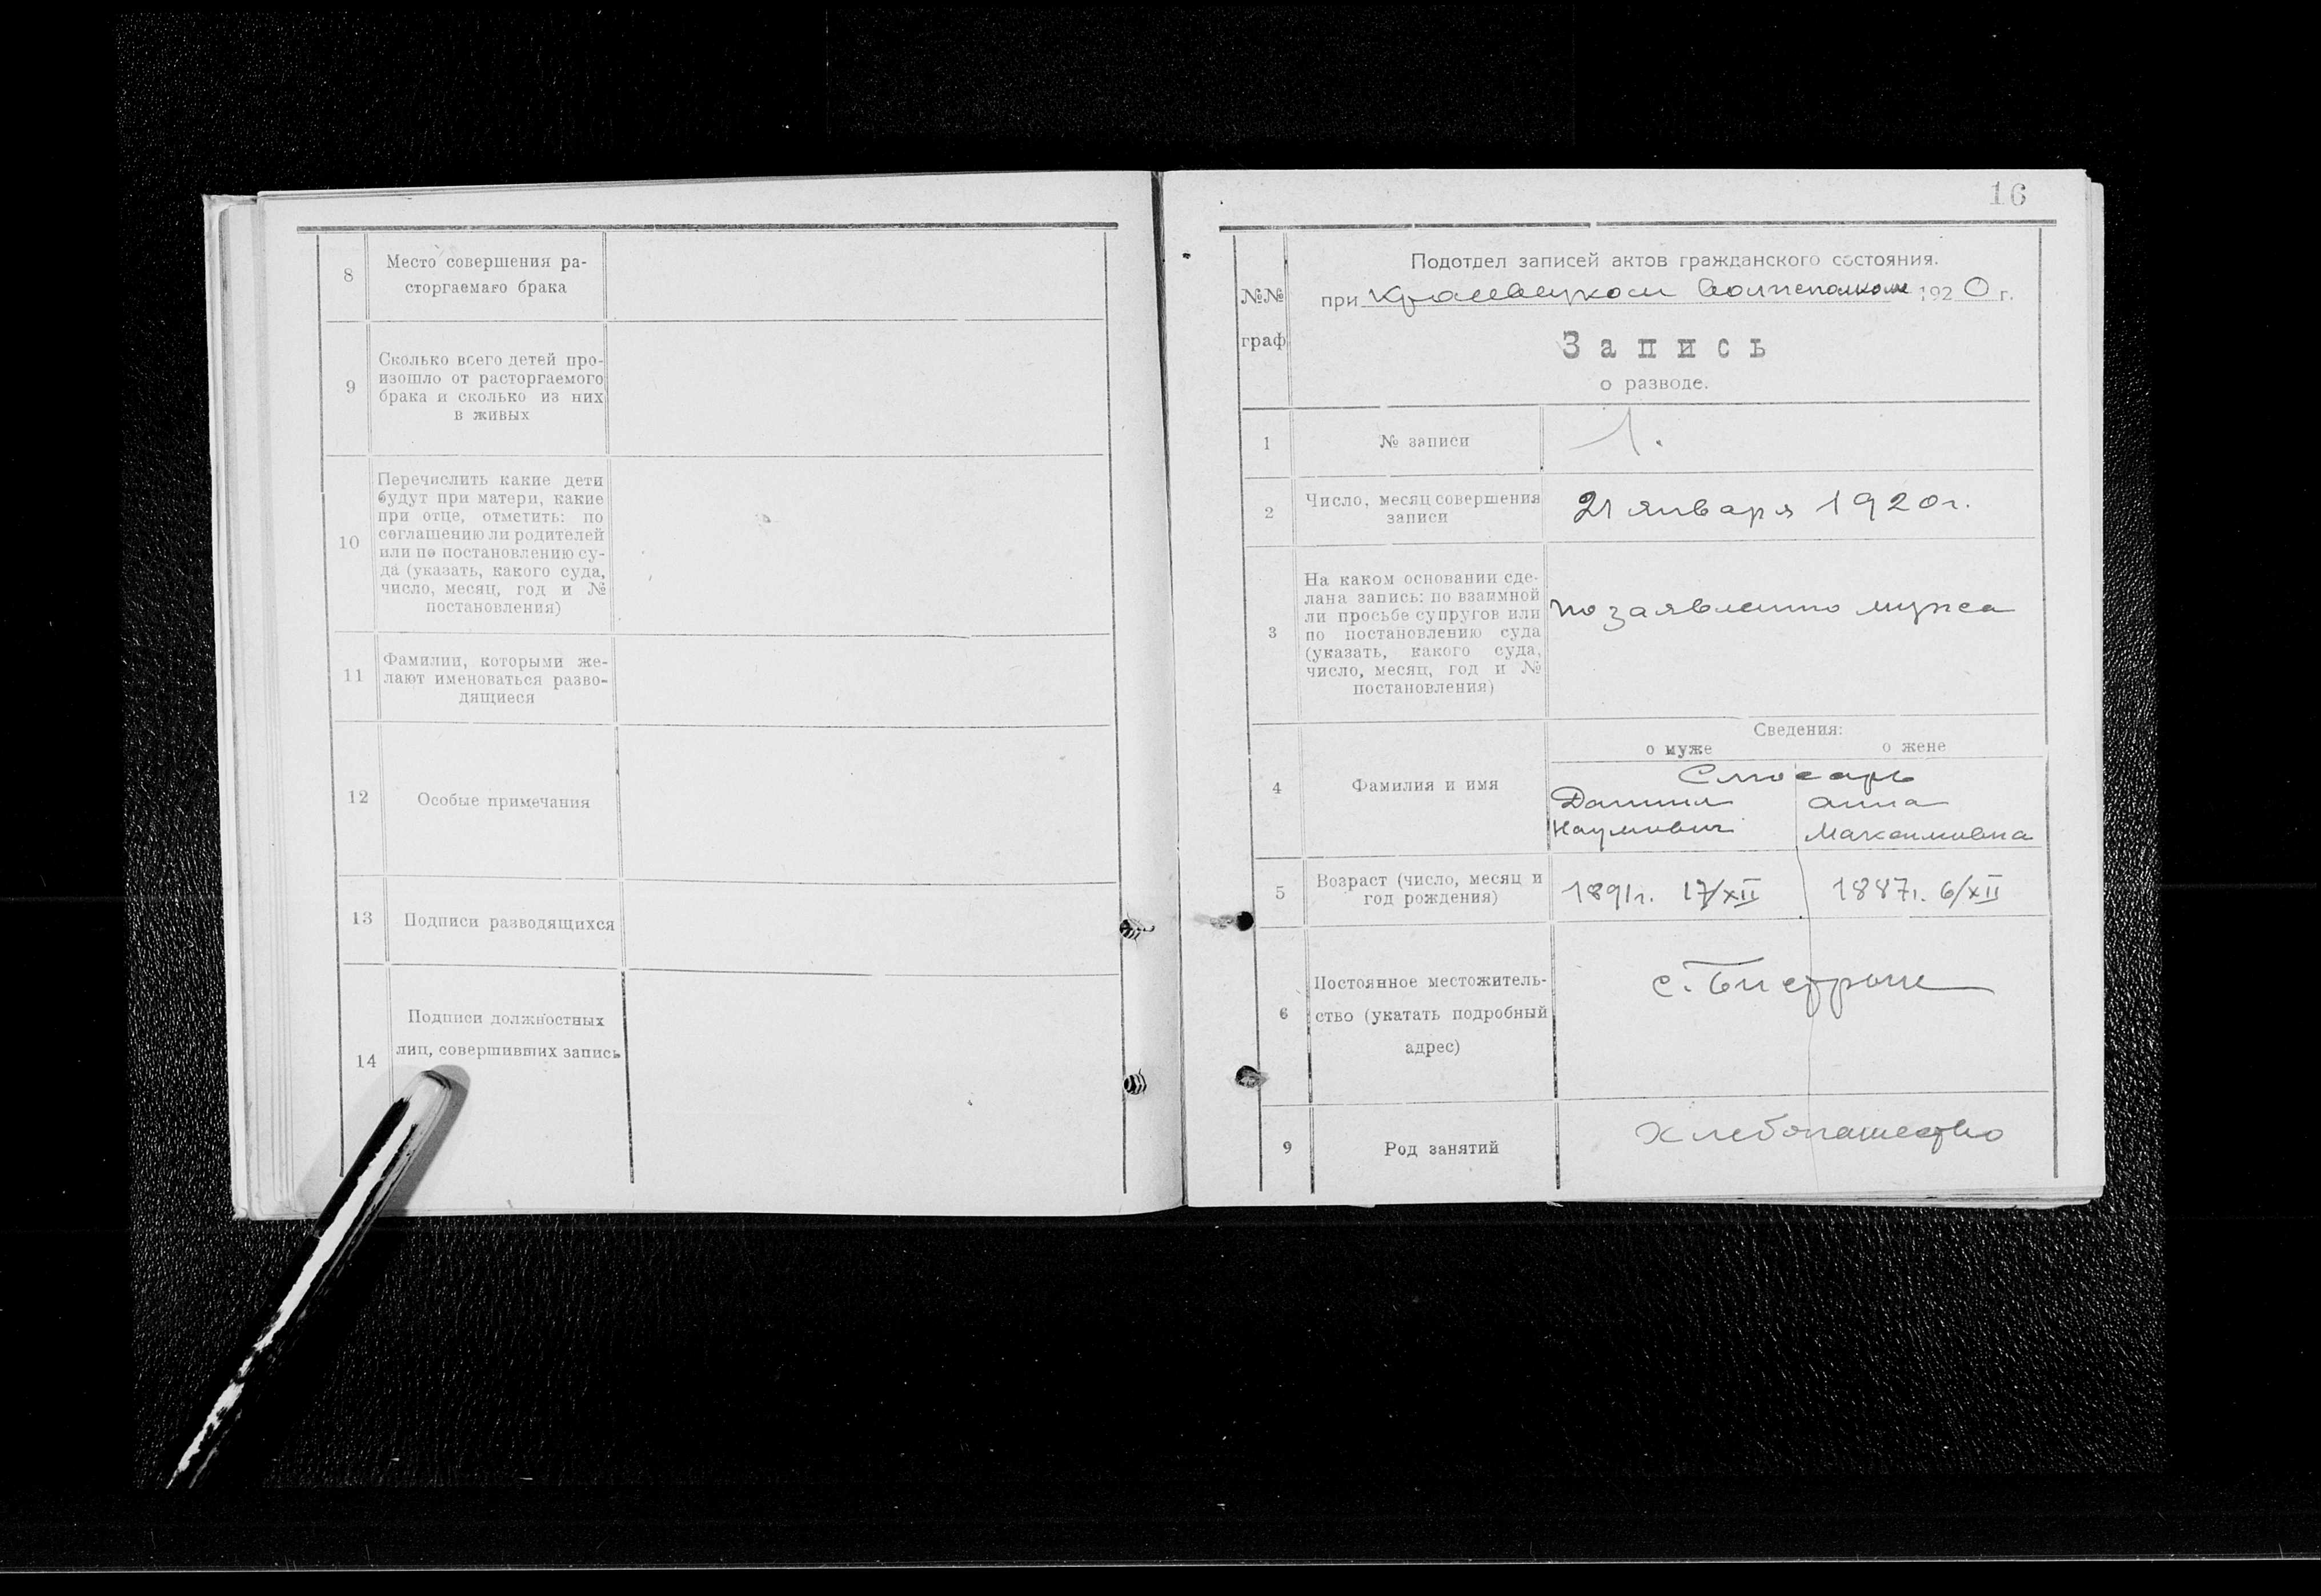 8
Место совершения ра-
сторгаемаго брака
9
Сколько всего детей про-
изошло от расторгаемого
брака и сколько из них
в живых
10
Перечислить какие дети
будут при матери, какие
при отце, отметить: по
соглашению ли родителей
или по постановлению су-
да (указать, какого суда,
число, месяц, год и №
постановления)
11
Фамилии, которыми же-
лают именоваться разво-
дящиеся
12
Особые примечания
13
Подписи разводящихся
14
Подписи должностных
лиц, совершивших запись
16
№№
граф
Подотдел записей актов гражданского состояния.
при волисполком 1920 г.
Запись
о разводе.
1
№ записи
1.
2
Число, месяц совершения
записи
21 января 1920г.
3
На каком основании сде-
лана запись: по взаимной
ли просьбе супругов или
по постановлению суда
(указать, какого суда,
число, месяц, год и №
постановления)
по заявлению мужа
Сведения:
о муже
о жене
4
Фамилия и имя
Слюсарь
Даниил
Наумович
Анна
Максимовна
5
Возраст (число, месяц и
год рождения)
1891г. 17/XII
1887г. 6/XII
6
Постоянное местожитель-
ство (укатать подробный
адрес)
с.
9
Род занятий
Хлебопашество